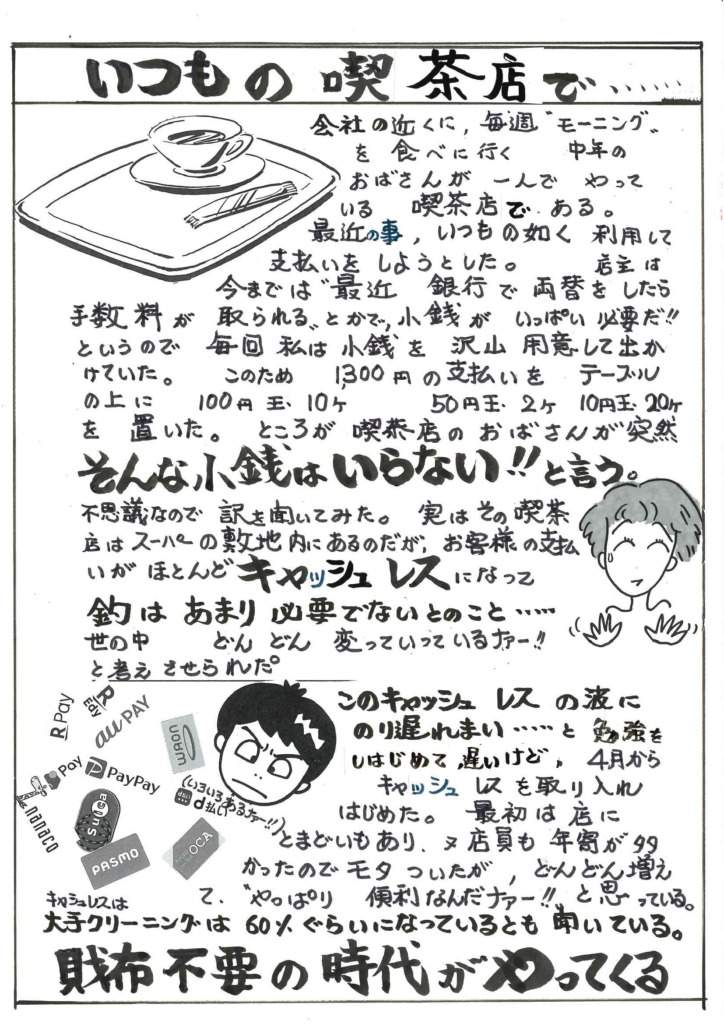 いつもの喫茶店で……
会社の近くに，毎週〝モーニング〟
を食べに行く 中年の
おばさんが 一人で やって
いる 喫茶店で ある。
最近の事，いつもの如く 利用して
支払いを しようとした。 店主は
今までは〝最近 銀行で 両替をしたら
手数料が 取られる〟とかで，小銭が いっぱい必要だ!!
というので 毎回 私は小銭を 沢山 用意して出か
けていた。 このため 1,300円の支払いを テーブル
の上に 100円玉・10ヶ 50円玉・2ヶ 10円玉・20ヶ
を 置いた。 ところが喫茶店の おばさんが突然
そんな小銭はいらない!!と言う。
不思議なので 訳を聞いてみた。 実はその喫茶
店はスーパーの敷地内にあるのだが，お客様の支払
いが ほとんど キャッシュレスになって
釣は あまり 必要でないとのこと……
世の中 どんどん 変っていっているナァー!!
と考えさせられた。
このキャッシュレスの波に
のり遅れまい……と 勉強を
しはじめて，遅いけど，4月から
キャッシュレスを取り入れ
はじめた。 最初は店に
とまどいもあり、又店員も 年寄が多
かったので モタついたが，どんどん増え
キャシュレスは て、〝やっぱり 便利なんだナァー!!〟と思っている。
大手クリーニングは 60%ぐらいになっているとも 聞いている。
財布不要の時代がやってくる
R Pay
R Edy
au PAY
WAON
d Pay
PayPay
(いろいろあるナァー!!)
d払い
nanaco
Suica
PASMO
TOICA